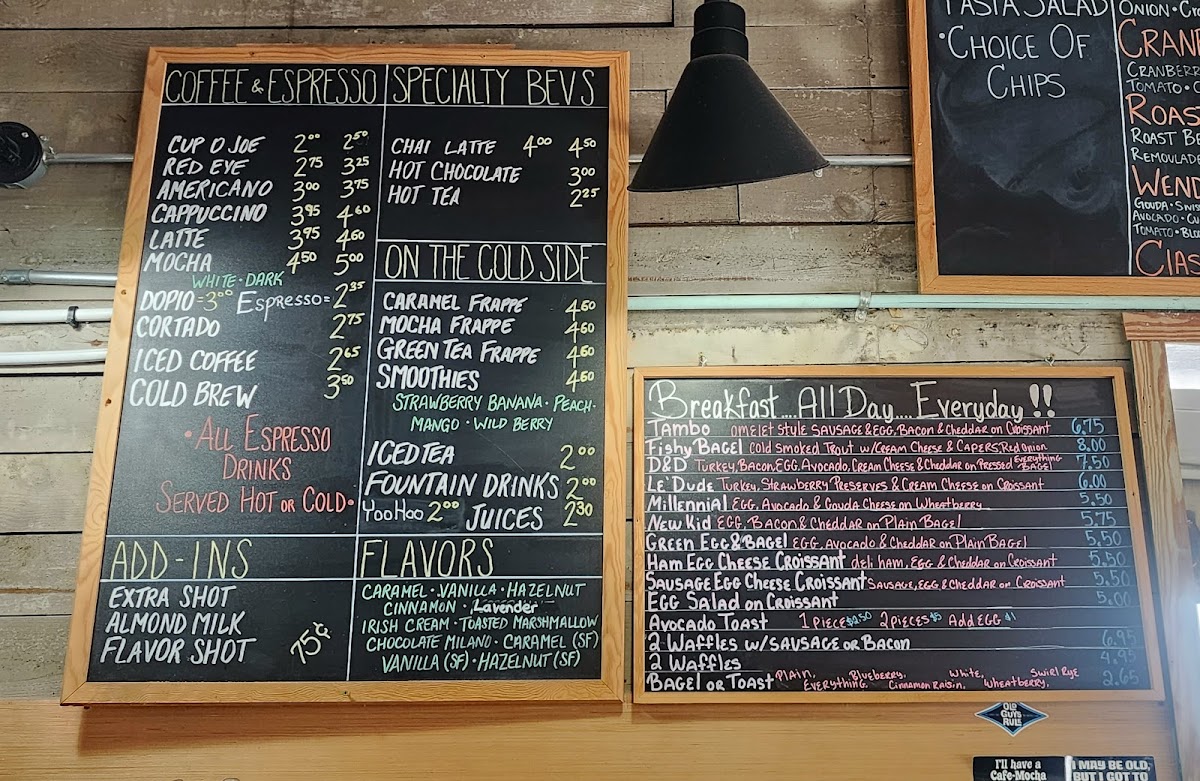 COFFEE & ESPRESSO
CUP O JOE 2⁰⁰ 2⁵⁰
RED EYE 2⁷⁵ 3²⁵
AMERICANO 3⁰⁰ 3⁷⁵
CAPPUCCINO 3⁹⁵ 4⁶⁰
LATTE 3⁹⁵ 4⁶⁰
MOCHA 4⁵⁰ 5⁰⁰
WHITE · DARK
DOPIO = 3⁰⁰ Espresso = 2³⁵
CORTADO 2⁷⁵
ICED COFFEE 2⁶⁵
COLD BREW 3⁵⁰
·ALL ESPRESSO
DRINKS
SERVED HOT OR COLD·
ADD-INS
EXTRA SHOT
ALMOND MILK
FLAVOR SHOT
75¢
SPECIALTY BEVS
CHAI LATTE 4⁰⁰ 4⁵⁰
HOT CHOCOLATE 3⁰⁰
HOT TEA 2²⁵
ON THE COLD SIDE
CARAMEL FRAPPE 4⁶⁰
MOCHA FRAPPE 4⁶⁰
GREEN TEA FRAPPE 4⁶⁰
SMOOTHIES 4⁶⁰
STRAWBERRY BANANA · PEACH ·
MANGO · WILD BERRY
ICED TEA 2⁰⁰
FOUNTAIN DRINKS 2⁰⁰
YooHoo 2⁰⁰ JUICES 2³⁰
FLAVORS
CARAMEL · VANILLA · HAZELNUT
CINNAMON · Lavender
IRISH CREAM · TOASTED MARSHMALLOW
CHOCOLATE MILANO · CARAMEL (SF)
VANILLA (SF) · HAZELNUT (SF)
Breakfast....All Day....Everyday!!
Tambo omelet style Sausage & Egg, Bacon & Cheddar on Croissant 6.75
Fishy Bagel Cold Smoked Trout w/Cream Cheese & Capers, Red onion 8.00
D&D Turkey, Bacon, Egg, Avocado, Cream Cheese & Cheddar on Pressed Everything Bagel 7.50
Le' Dude Turkey, Strawberry Preserves & Cream Cheese on Croissant 6.00
Millennial Egg, Avocado & Gouda Cheese on Wheatberry 5.50
New Kid Egg, Bacon & Cheddar on Plain Bagel 5.75
Green Egg & Bagel Egg, Avocado & Cheddar on Plain Bagel 5.50
Ham Egg Cheese Croissant deli ham, Egg & Cheddar on Croissant 5.50
Sausage Egg Cheese Croissant Sausage, Egg & Cheddar on Croissant 5.50
Egg Salad on Croissant 5.00
Avocado Toast 1 Piece $2.50 2 pieces $5 Add Egg $1
2 Waffles w/ Sausage or Bacon 6.95
2 Waffles 4.95
Bagel or Toast Plain, Blueberry, White, Swirl Rye 2.65
Everything, Cinnamon Raisin, Wheatberry,
PASTA SALAD
·CHOICE OF
CHIPS
ONION ·
CRANB
CRANBERRY
TOMATO ·
ROAS
ROAST B
REMOULAD
WEND
GOUDA · SWIS
AVOCADO ·
TOMATO · BLO
CLAS
OLD
GUYS
RULE
I'll have a
Cafe-Mocha
I MAY BE OLD,
BUT I GOT TO